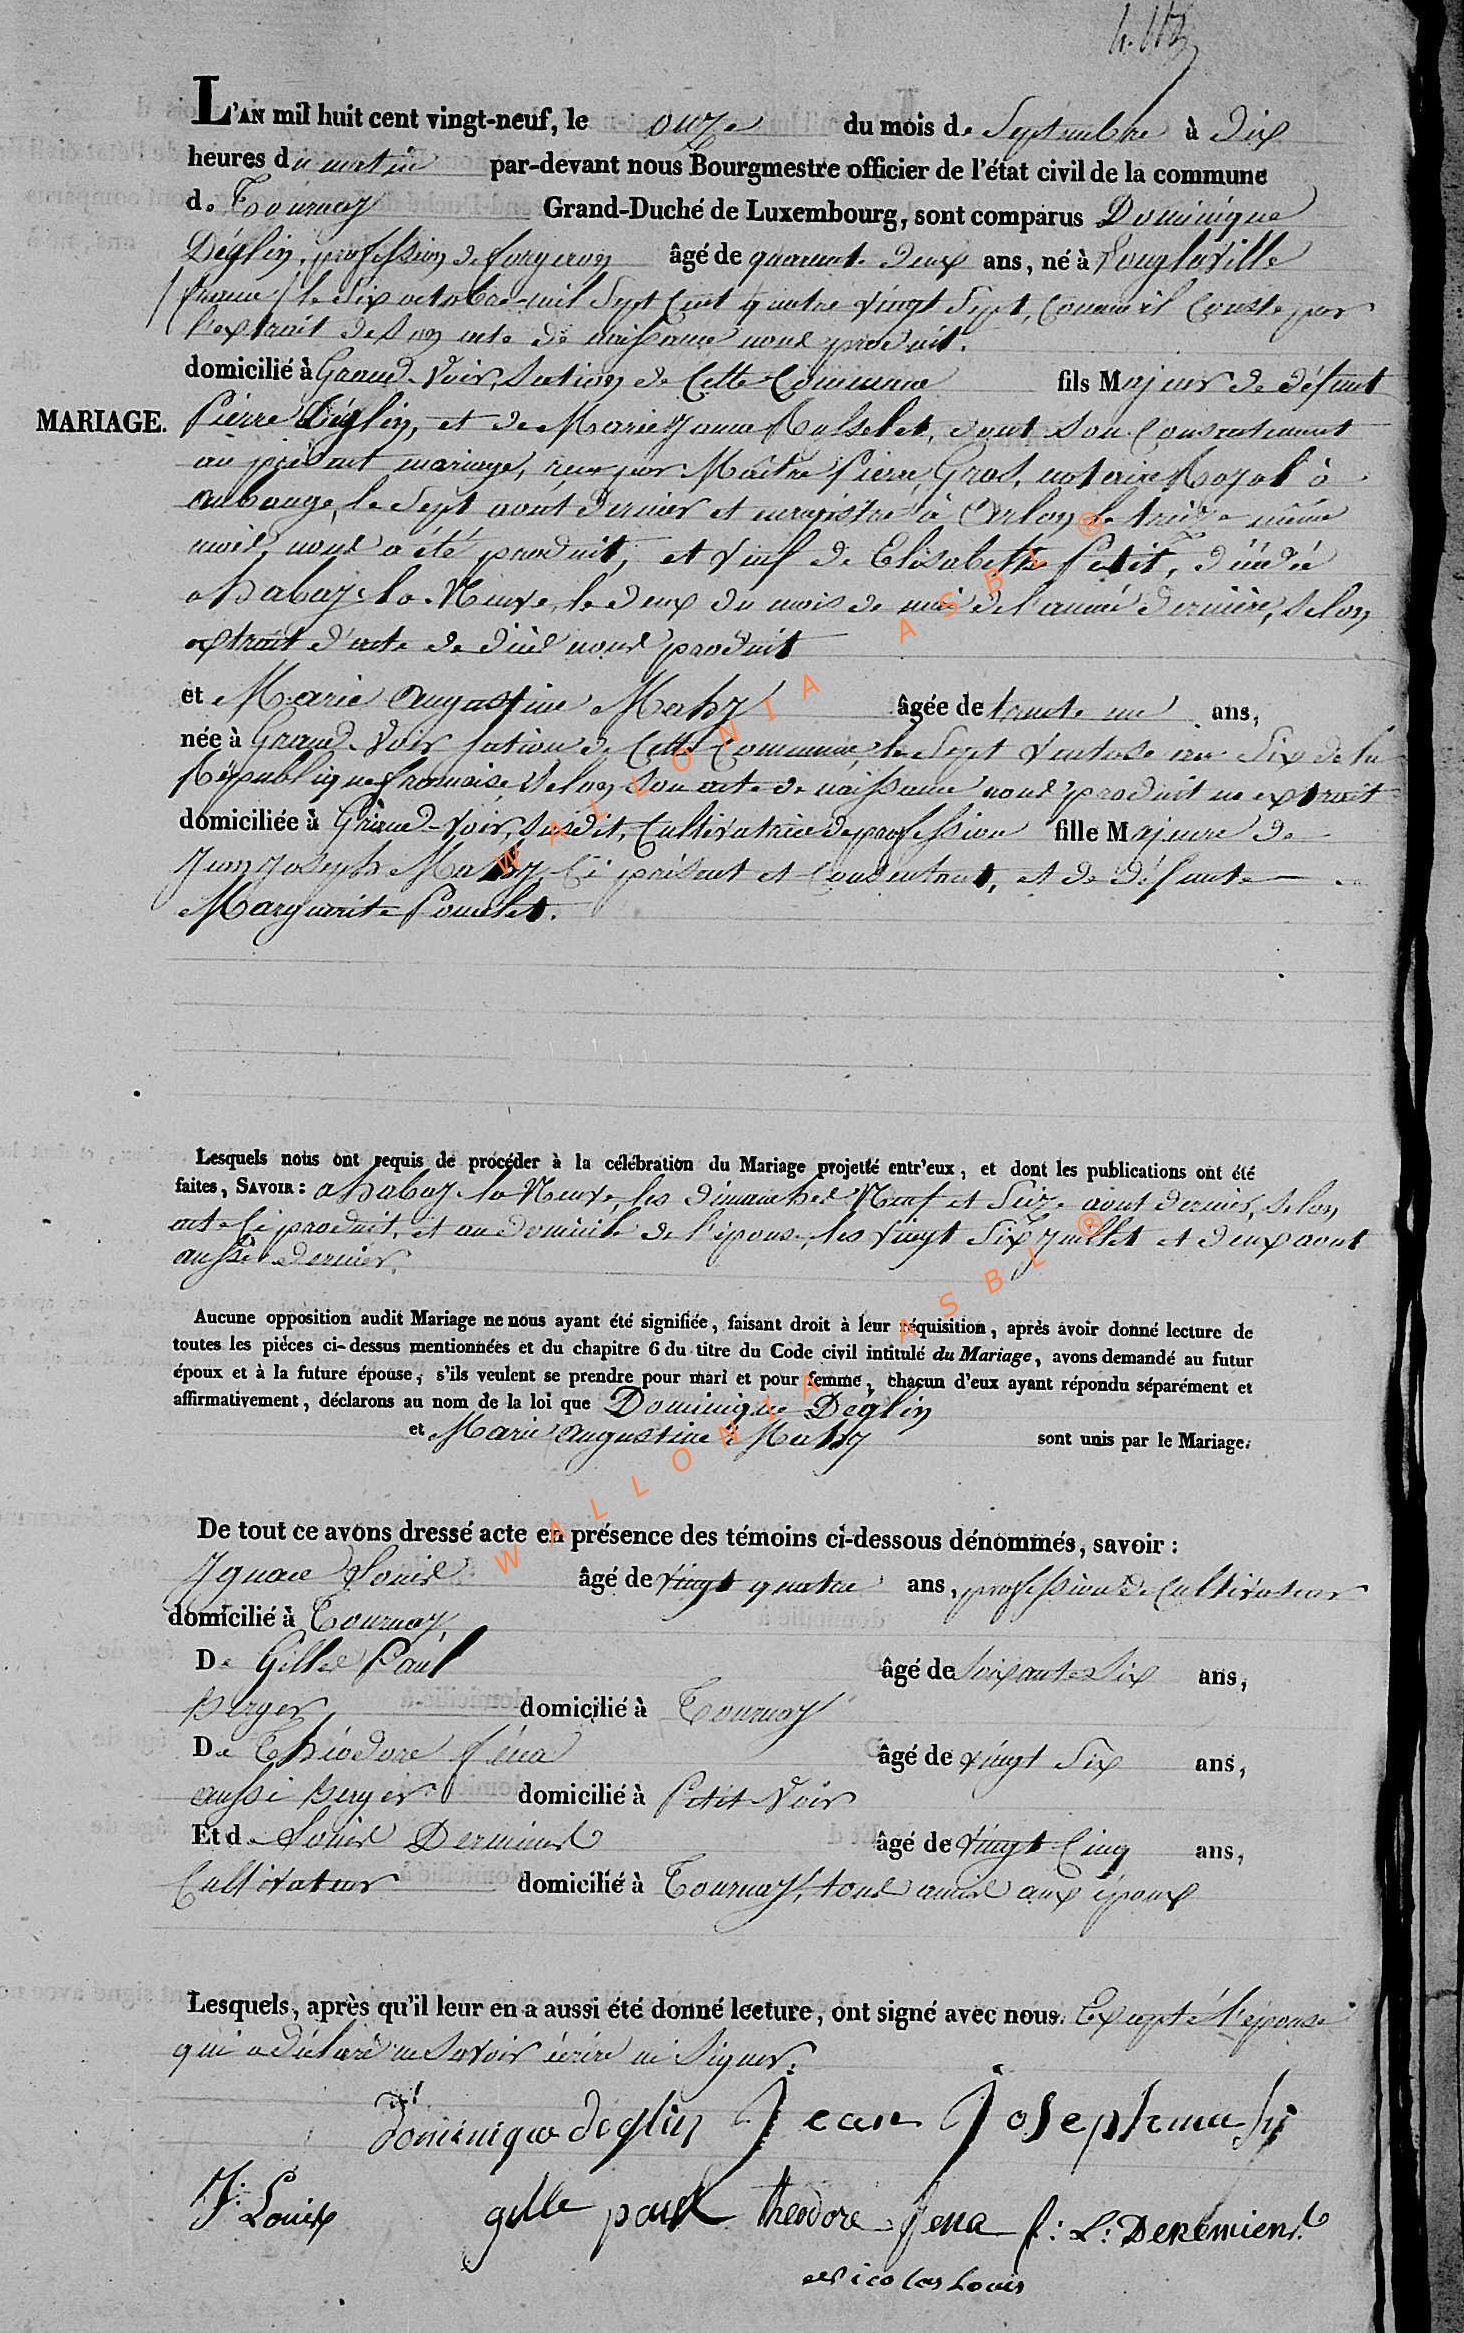 L'AN mil huit cent vingt-neuf, le onze du mois de Septembre à Dix
heures du matin par-devant nous Bourgmestre officier de l'état civil de la commune
de Tournay Grand-Duché de Luxembourg, sont comparus Dominique
Déglin, profession de forgeron âgé de quarente deux ans, né à Longlaville
(france) le Six octobre mil Sept Cent quatre vingt Sept, Comme il Conste par
l'extrait de Son acte de naissance nous produit.
domicilié à Grand-Voir, Section de Cette Commune fils Majeur de défunt
MARIAGE.
Pierre Déglin, et de Marie Jeanne Rosselet, dont Son Consentement
au présent mariage, reçu par Maître Pierre Gros, notaire Royal à
aubange, le Sept août dernier et enregistré à Arlon le treize même
mois, nous a été produit, et Veuf de Elisabeth Petit, décédée
a habay-la-Neuve, le deux du mois de mai de l'année dernière, Selon
extrait d'acte de décès nous produit
et Marie Augustine Mahy âgée de trente un ans,
née à Grand-Voir Section de Cette Commune, le Sept Ventose an Six de la
République francaise Selon Son acte de naissance nous produit en extrait
domiciliée à Grand-Voir, Susdit, Cultivatrice de profession fille Majeure de
Jean Joseph Mahy, Ci présent et Consentant, et de défunte
Marguerite Poncelet.
Lesquels nous ont requis de procéder à la célébration du Mariage projetté entr'eux, et dont les publications ont été
faites, SAVOIR: a habay-la-Neuve, les dimanches Neuf et Seize aout dernier, Selon
acte Ci produit, et au domicile de l'épouse, les Vingt Six juillet et deux aout
aussi dernier.
Aucune opposition audit Mariage ne nous ayant été signifiée, faisant droit à leur réquisition, après avoir donné lecture de
toutes les pièces ci-dessus mentionnées et du chapitre 6 du titre du Code civil intitulé du Mariage, avons demandé au futur
époux et à la future épouse, s'ils veulent se prendre pour mari et pour femme, chacun d'eux ayant répondu séparément et
affirmativement, déclarons au nom de la loi que Dominique Déglin
et Marie Augustine Mahy sont unis par le Mariage.
De tout ce avons dressé acte en présence des témoins ci-dessous dénommés, savoir:
Ignace Louis âgé de vingt quatre ans, profession de Cultivateur
domicilié à Tournay,
De Gilles Paul âgé de Soixante Six ans,
Berger domicilié à Tournay
De Théodore féna âgé de vingt Six ans,
aussi Berger domicilié à Petit-Voir
Et de Louis Deremiens âgé de Vingt Cinq ans,
Cultivateur domicilié à Tournay, tous amis aux époux
Lesquels, après qu'il leur en a aussi été donné lecture, ont signé avec nous. Excepté l'épouse
qui a déclaré ne Savoir écrire ni Signer.
dominique déglin Jean Joseph mahy
J: Louis gille paul theodore fena f: L: Deremiens
Nicolas Louis
WALLONIA ASBL ®
WALLONIA ASBL ®